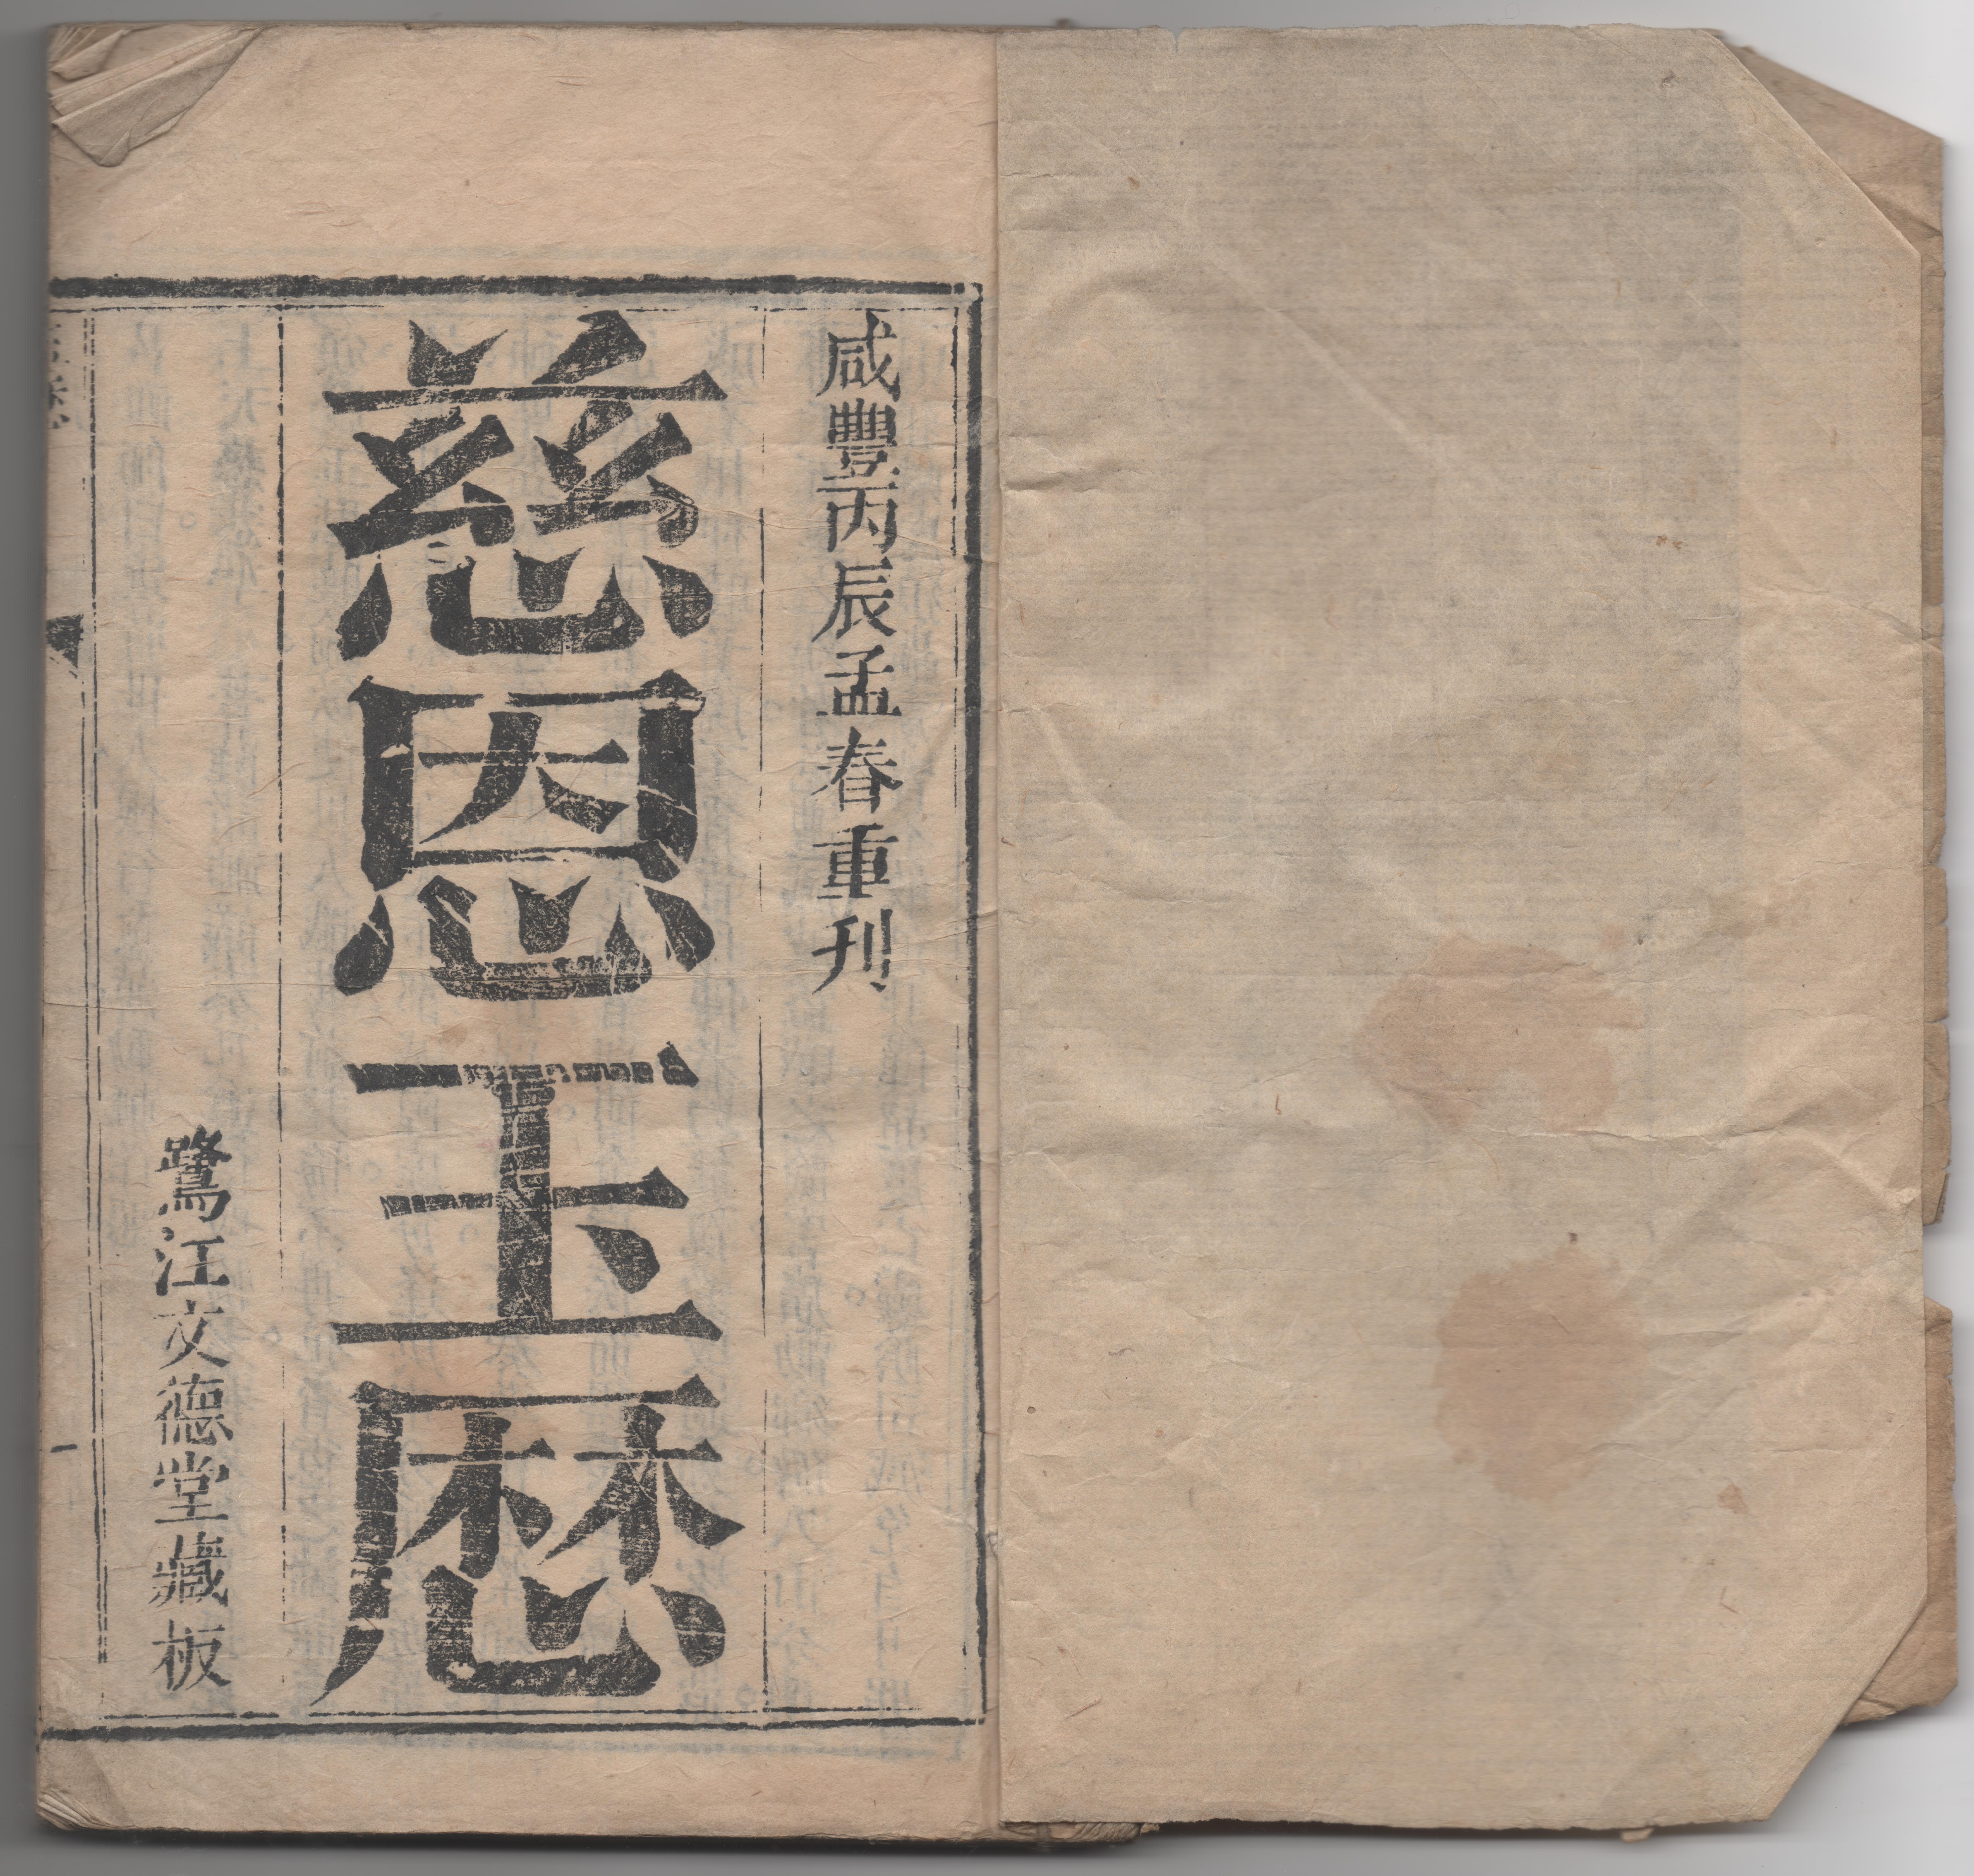 咸豐丙辰孟春重刊
慈恩玉厯
鷺江文德堂藏板